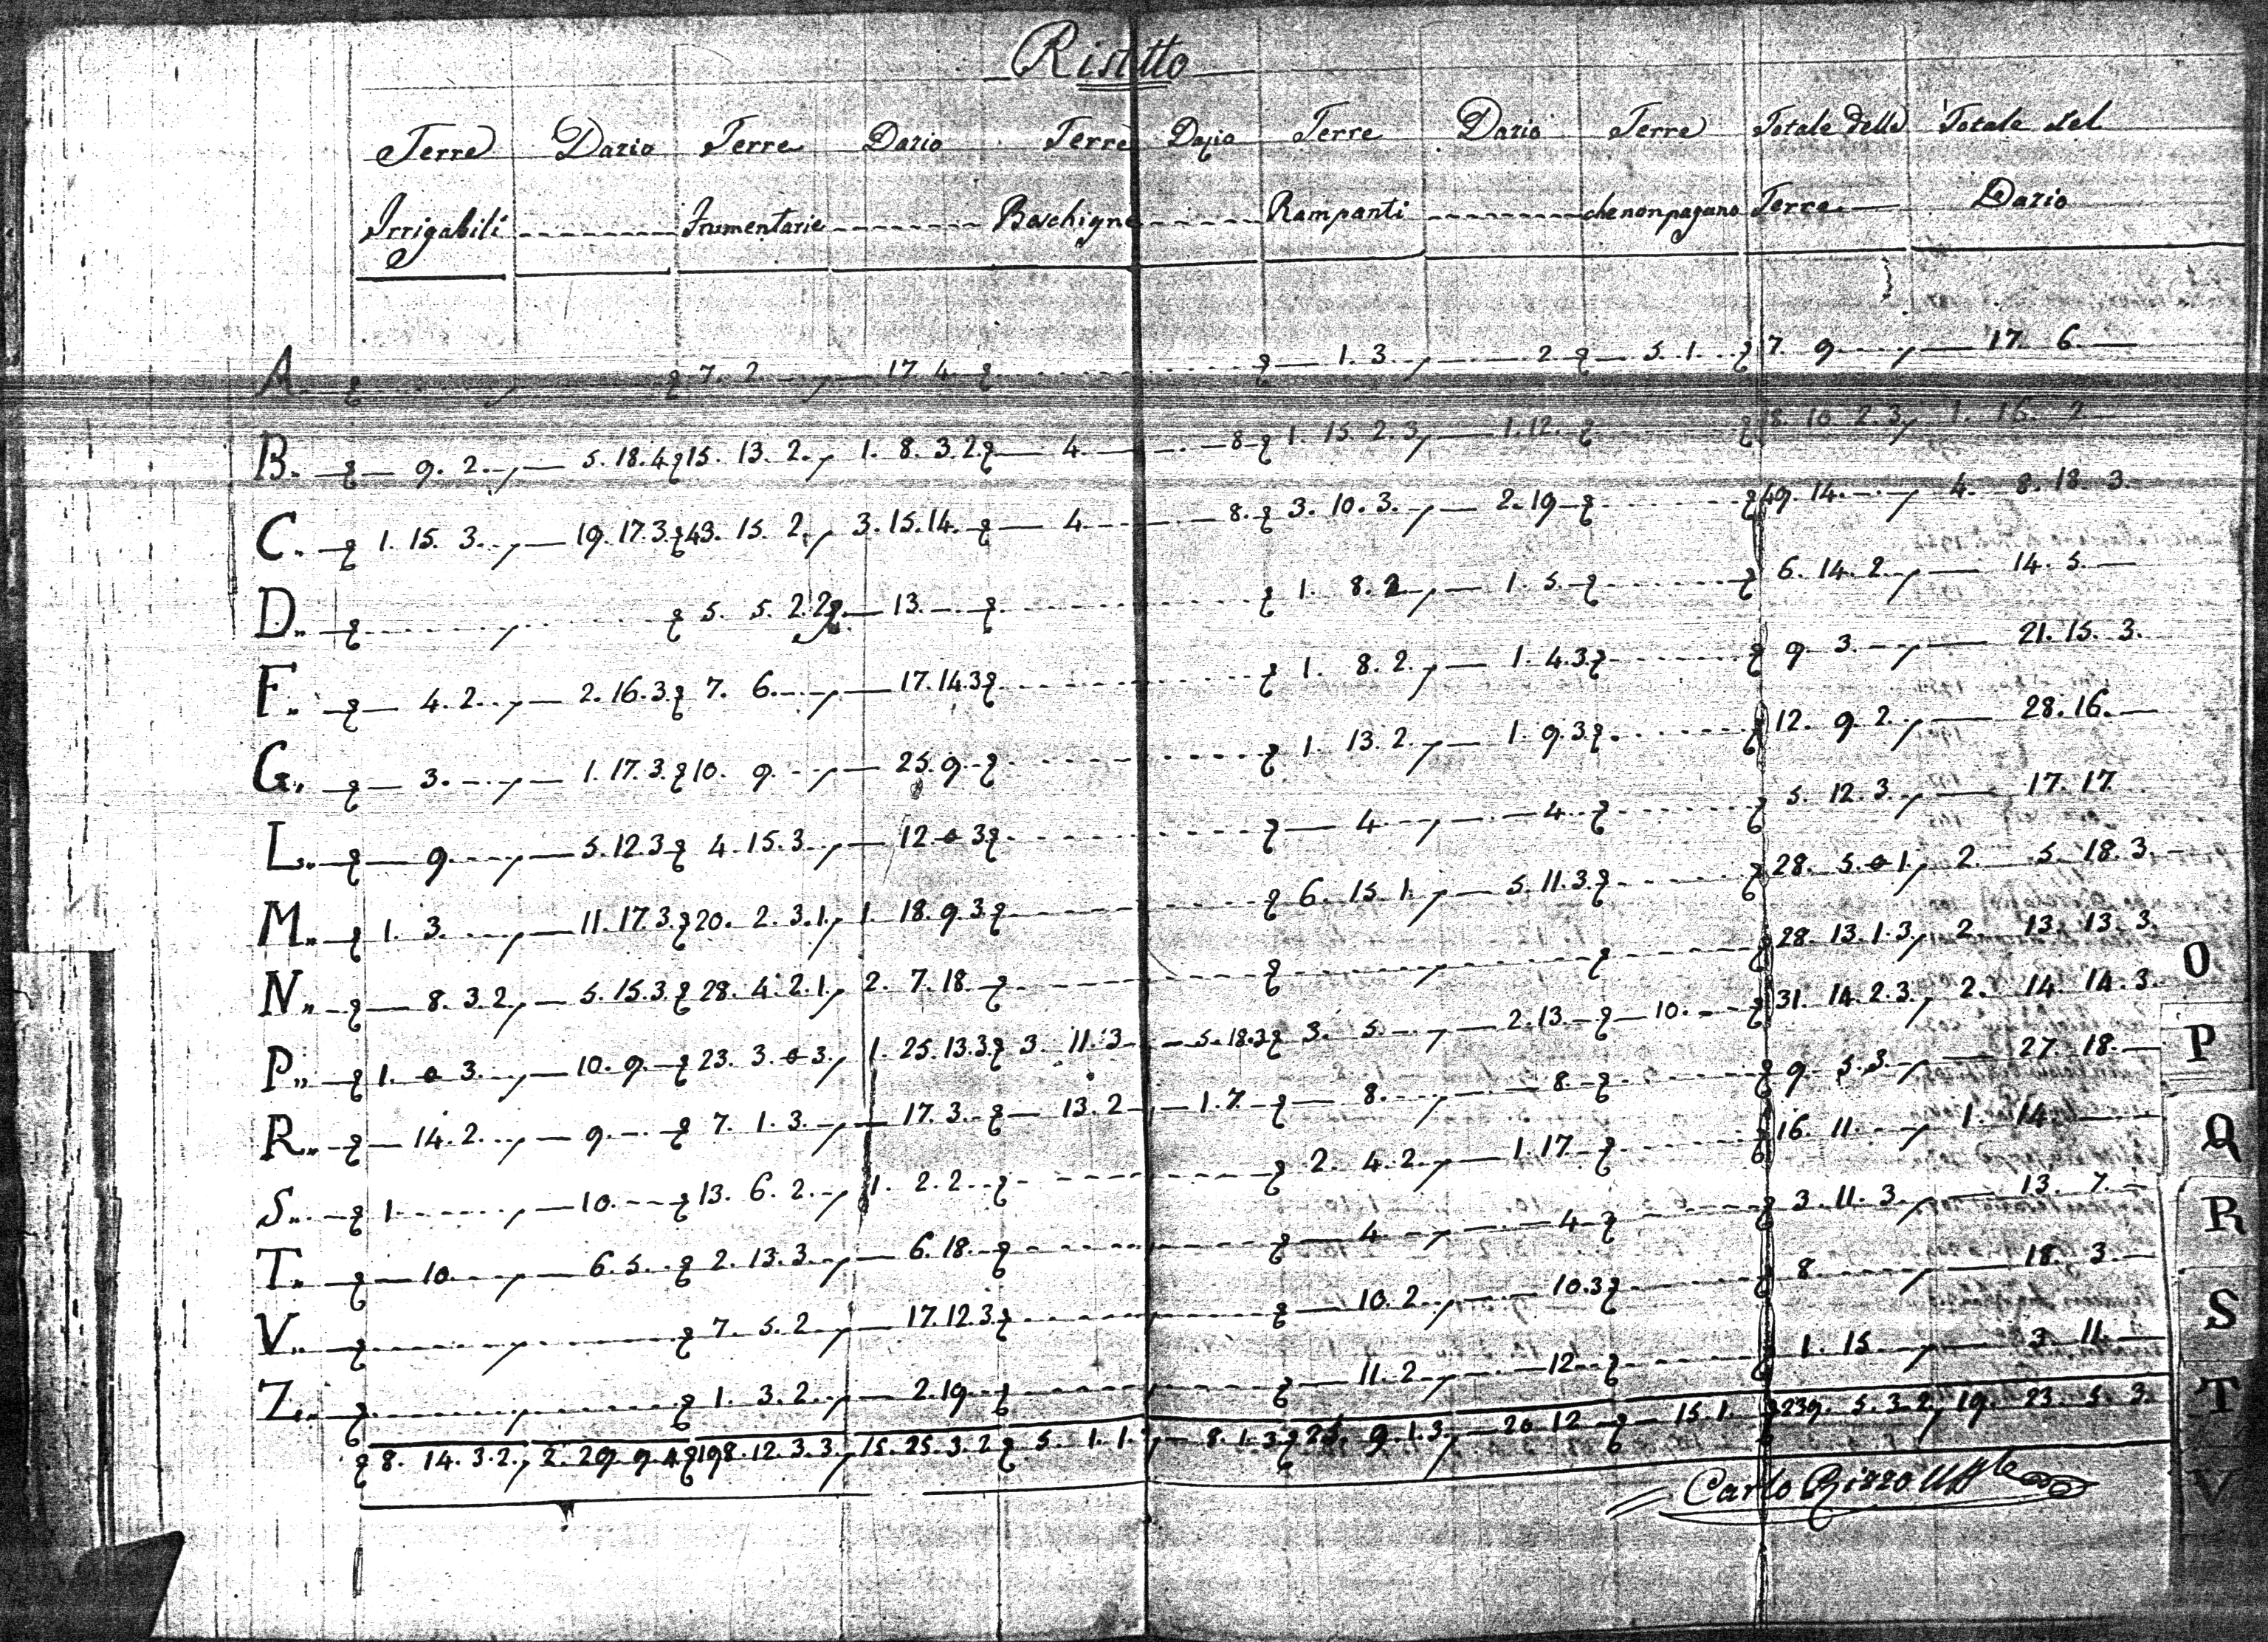 Ristetto
Terre Dazio Terre Dazio Terre Dazio Terre Dazio Terre Totale delle Totale del
Irrigabili Frumentarie Boschigne Rampanti che non pagano Terre Dazio
A. 7. 2 17. 4. 1. 3. 2 5. 1. 7. 9 17. 6.
B. 9. 2. 5. 18. 4 15. 13. 2. 1. 8. 3. 2 4. 8 1. 15. 2. 3 1. 12. 18. 10 2. 3 1. 16. 2
C. 1. 15. 3. 19. 17. 3. 43. 15. 2. 3. 15. 14. 4 8. 3. 10. 3. 2. 19 49. 14. 4. 8. 18. 3.
D. 5. 5. 2. 2 13. 1. 8. 2 1. 5. 6. 14. 2. 14. 5.
F. 4. 2. 2. 16. 3. 7. 6. 17. 14. 3 1. 8. 2. 1. 4. 3. 9. 3. 21. 15. 3.
G. 3. 1. 17. 3. 10. 9. 25. 9. 1. 13. 2. 1. 9. 3. 12. 9. 2. 28. 16.
L. 9. 5. 12. 3 4. 15. 3. 12 0 3 4 4. 5. 12. 3. 17. 17.
M. 1. 3. 11. 17. 3. 20. 2. 3. 1. 1. 18. 9. 3. 6. 15. 1. 5. 11. 3. 28. 5. 0 1. 2. 5. 18. 3.
N. 8. 3. 2. 5. 15. 3 28. 4. 2. 1. 2. 7. 18. 28. 13. 1. 3. 2. 13. 13. 3.
P. 1. 0 3. 10. 9. 23. 3. 0 3. 1. 25. 13. 3. 3. 11. 3 5. 18. 3 3. 5. 2. 13. 10. 31. 14. 2. 3. 2. 14. 14. 3.
R. 14. 2. 9. 7. 1. 3. 17. 3. 13. 2 1. 7. 8. 8. 9. 5. 3. 27. 18.
S. 1. 10. 13. 6. 2. 1. 2. 2. 2. 4. 2. 1. 17. 16. 11 1. 14.
T. 10. 6. 5. 2. 13. 3. 6. 18. 4 4 3. 11. 3. 13. 7.
V. 7. 5. 2. 17. 12. 3. 10. 2. 10. 3 8. 18. 3.
Z. 1. 3. 2. 2. 19. 11. 2 12 1. 15 3. 11.
8. 14. 3. 2. 2. 29. 9. 4 198. 12. 3. 3. 15. 25. 3. 2 5. 1. 1. 8. 1. 3. 9. 1. 3. 20 12 15. 1. 239. 5. 3. 2. 19. 23. 5. 3.
Carlo Rizzo
O
P
Q
R
S
T
V